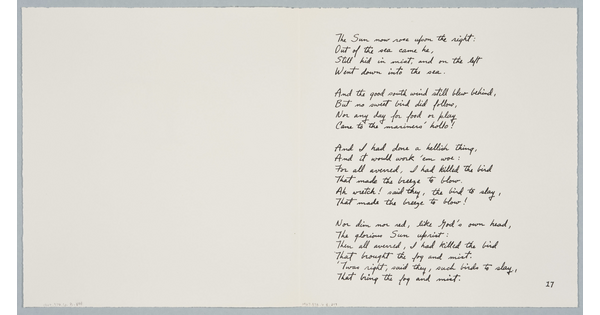 The Sun now rose upon the right:
Out of the sea came he,
Still hid in mist, and on the left
Went down into the sea.
And the good south wind still blew behind,
But no sweet bird did follow,
Nor any day for food or play
Came to the mariners' hollo!
And I had done a hellish thing,
And it would work 'em woe:
For all averred, I had killed the bird
That made the breeze to blow.
Ah wretch! said they, the bird to slay,
That made the breeze to blow!
Nor dim nor red, like God's own head,
The glorious Sun uprist:
Then all averred, I had killed the bird
That brought the fog and mist.
'Twas right, said they, such birds to slay,
That bring the fog and mist.
27